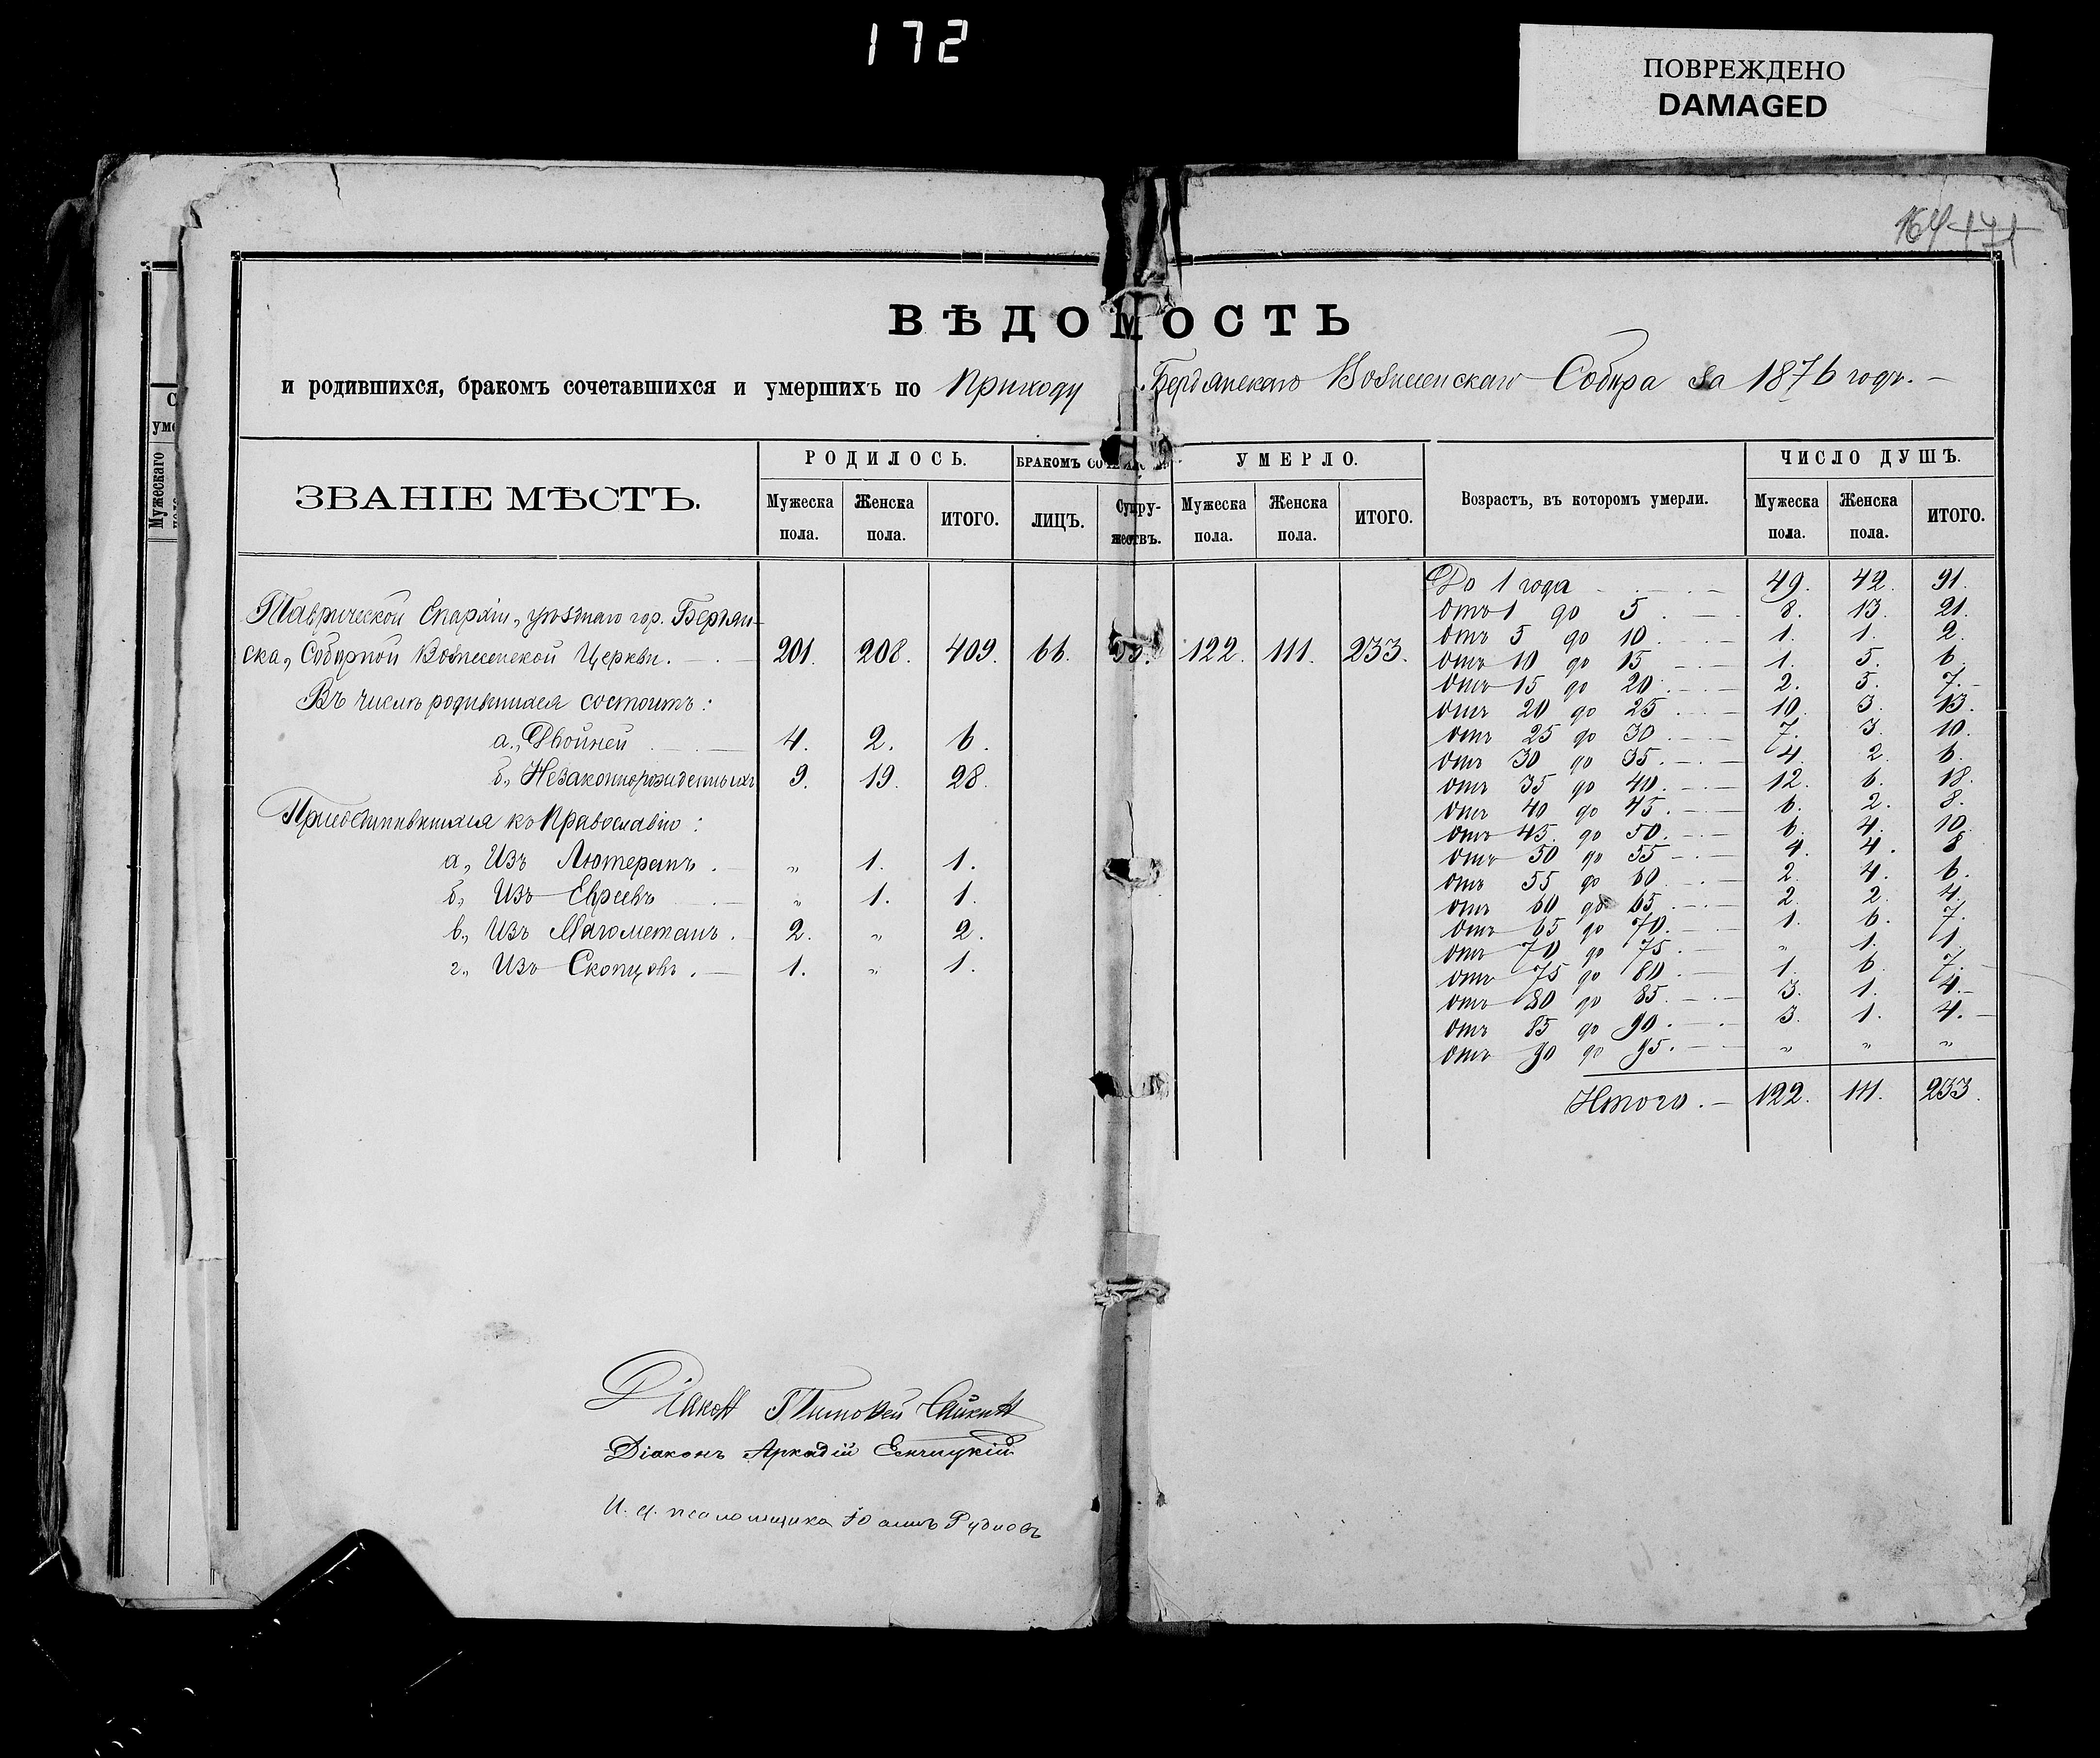 172
ПОВРЕЖДЕНО
DAMAGED
ВѢДОМОСТЬ
и родившихся, бракомъ сочетавшихся и умершихъ по Приходу Бердянскаго Вознесенскаго Собора за 1876 годъ.
ЗВАНІЕ МѢСТЪ.
РОДИЛОСЬ. БРАКОМЪ УМЕРЛО. Возрастъ, въ которомъ умерли. ЧИСЛО ДУШЪ.
Мужеска пола. Женска пола. ИТОГО. ЛИЦЪ. Супружествъ. Мужеска пола. Женска пола. ИТОГО. Мужеска пола. Женска пола. ИТОГО.
Таврической Епархіи, уѣзднаго гор. Бердян-
ска, Соборной Вознесенской Церкви. 201. 208. 409. 66. 33. 122. 111. 233.
Въ числѣ родившихся состоитъ:
а., Двойней 4. 2. 6.
б., Незаконнорожденныхъ 9. 19. 28.
Присоединившихся къ Православію:
а, Изъ Лютеранъ. „ 1. 1.
б, Изъ Евреевъ „ 1. 1.
в., Изъ Магометанъ. 2. „ 2.
г., Изъ Скопцовъ. 1. „ 1.
До 1 года 49. 42. 91.
Отъ 1 до 5 8. 13. 21.
Отъ 5 до 10 1. 1. 2.
Отъ 10 до 15 1. 5. 6.
Отъ 15 до 20 2. 5. 7.
Отъ 20 до 25 10. 3. 13.
Отъ 25 до 30 7. 3. 10.
Отъ 30 до 35. 4. 2. 6.
Отъ 35 до 40. 12. 6. 18.
Отъ 40 до 45. 6. 2. 8.
Отъ 45. до 50. 6. 4. 10.
Отъ 50 до 55 4. 4. 8
Отъ 55 до 60 2. 4. 6.
Отъ 60 до 65 2. 2. 4.
Отъ 65 до 70. 1. 6. 7.
Отъ 70 до 75. „ 1. 1.
Отъ 75 до 80. 1. 6. 7.
Отъ 80 до 85. 3. 1. 4.
Отъ 85 до 90. 3. 1. 4.
Отъ 90 до 95. „ „ „
Итого. 122. 111. 233.
Діакон Тимофей
Діаконъ Аркадій Енчицкій
И. д. псаломщика Рудневъ